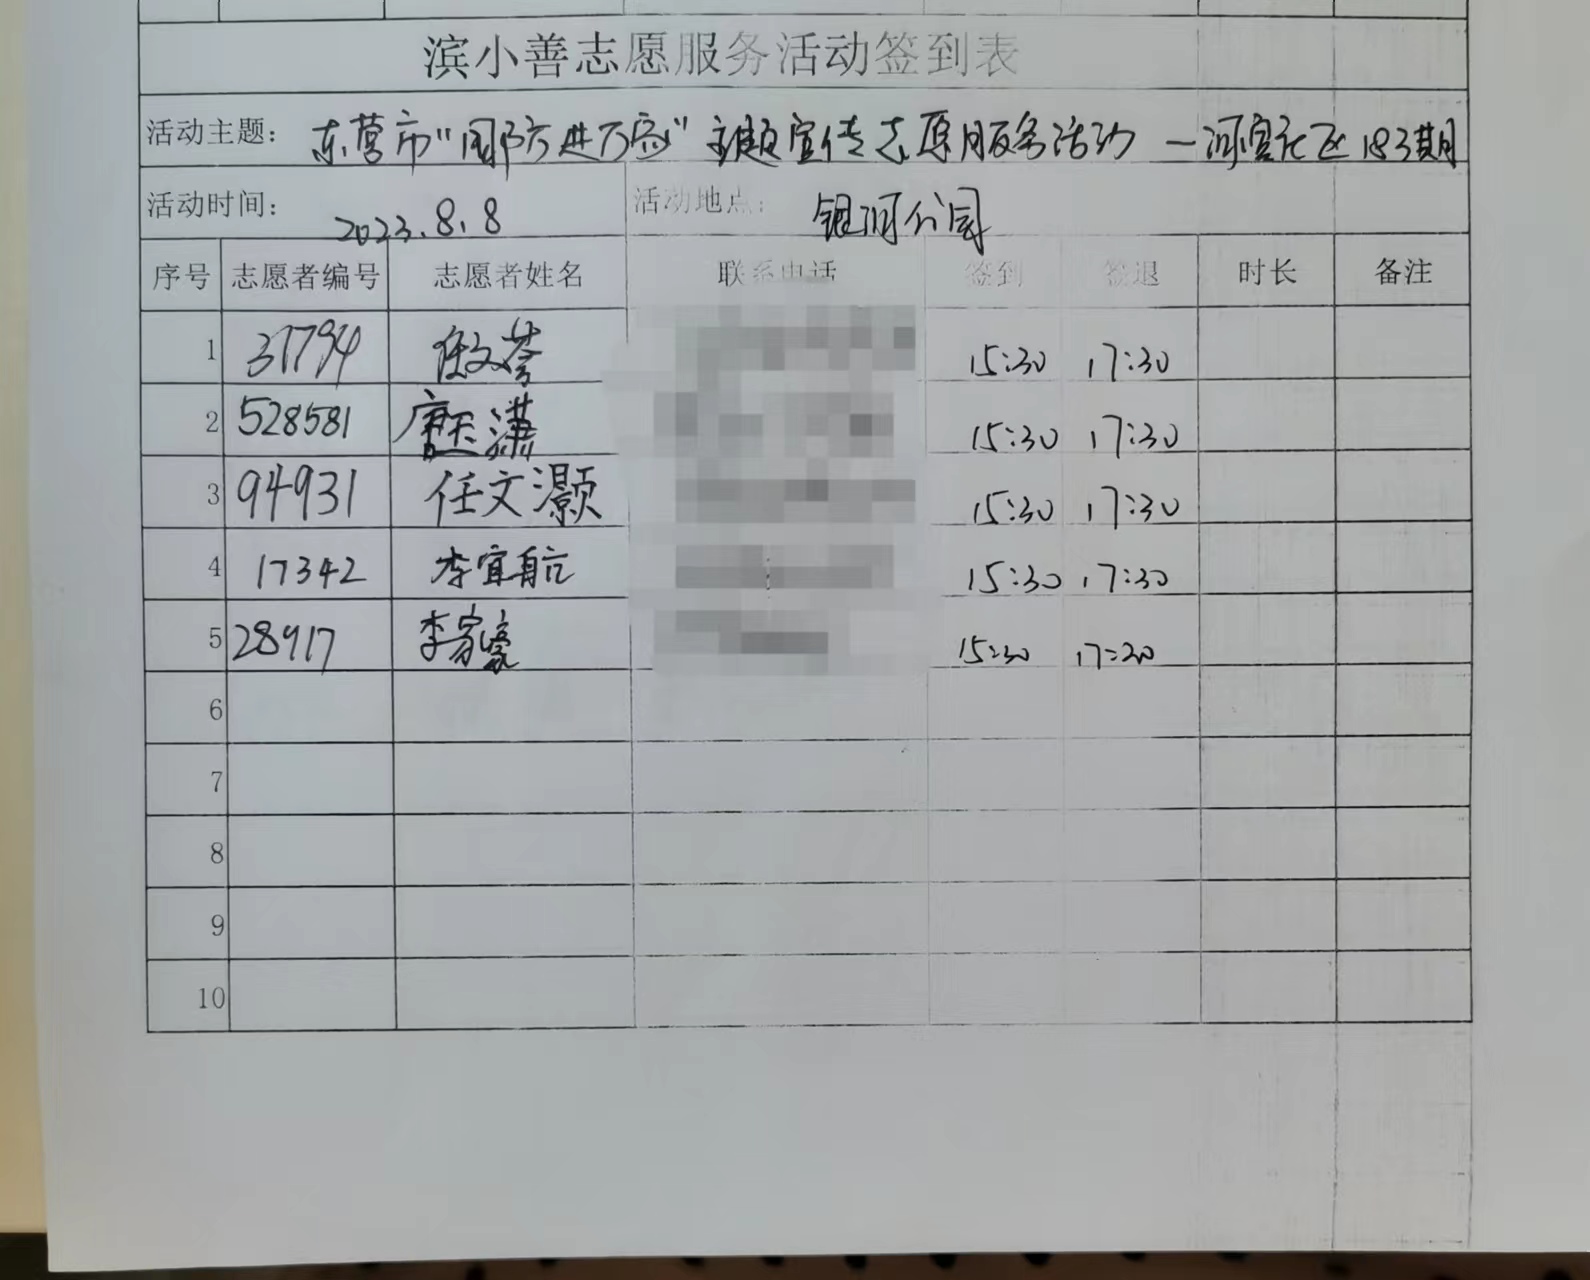 滨小善志愿服务活动签到表
活动主题： 东营市"国防进万家"主题宣传志愿服务活动 —河宫社区183期
活动时间： 2023.8.8 活动地点： 银河公园
序号 志愿者编号 志愿者姓名 联系电话 签到 签退 时长 备注
1 37794 任文荟 15:30 17:30
2 528581 唐玉潇 15:30 17:30
3 94931 任文灏 15:30 17:30
4 17342 李宜航 15:30 17:30
5 28917 李家豪 15:30 17:30
6
7
8
9
10